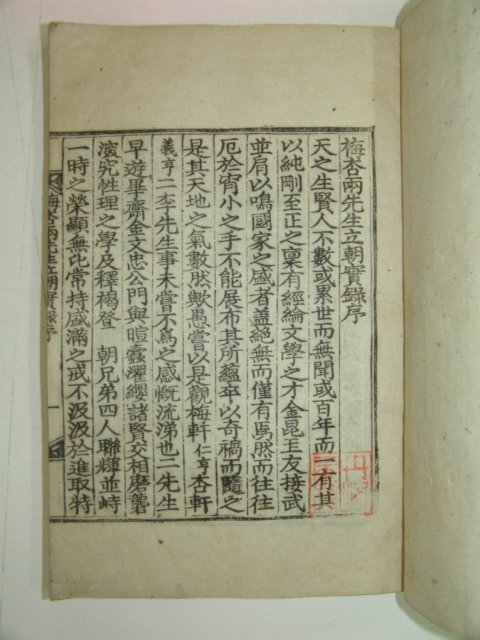 梅杏兩先生立朝實錄序
天之生賢人不數或累世而無聞或百年而一有其
以純剛至正之稟有經綸文學之才金昆玉友接武
並肩以鳴國家之盛者盖絶無而僅有焉然而往往
厄於宵小之手不能展布其所蘊卒以奇禍而隨之
是其天地之氣數然歟愚嘗以是觀梅軒仁亨杏軒
義亨二李先生事未嘗不爲之感慨流涕也二先生
早遊畢齋金文忠公門與暄蠹濯纓諸賢交相磨礱
深究性理之學及釋褐登 朝兄弟四人聯輝並峙
一時之榮顯無比常持盛滿之戒不汲汲於進取特
梅杏兩先生立朝實錄序 一